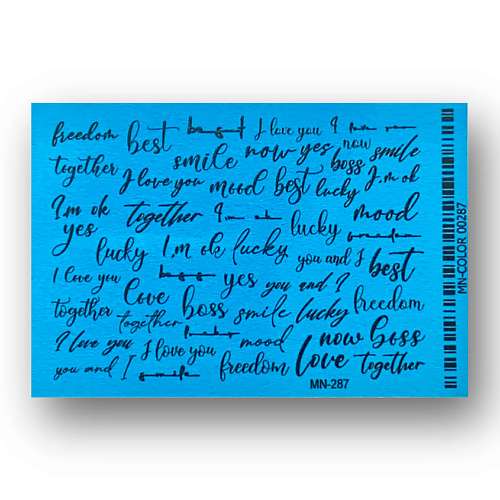 freedom best best I love you I
together smile now yes now boss smile
I love you mood best lucky I,m ok
I,m ok together I,m ok lucky mood
yes
lucky I,m ok lucky you and I best
freedom
I love you boss yes you and I
together love boss smile lucky freedom
together
I love you lucky mood now boss
I love you
you and I smile freedom love together
MN-287
MN-COLOR 00287